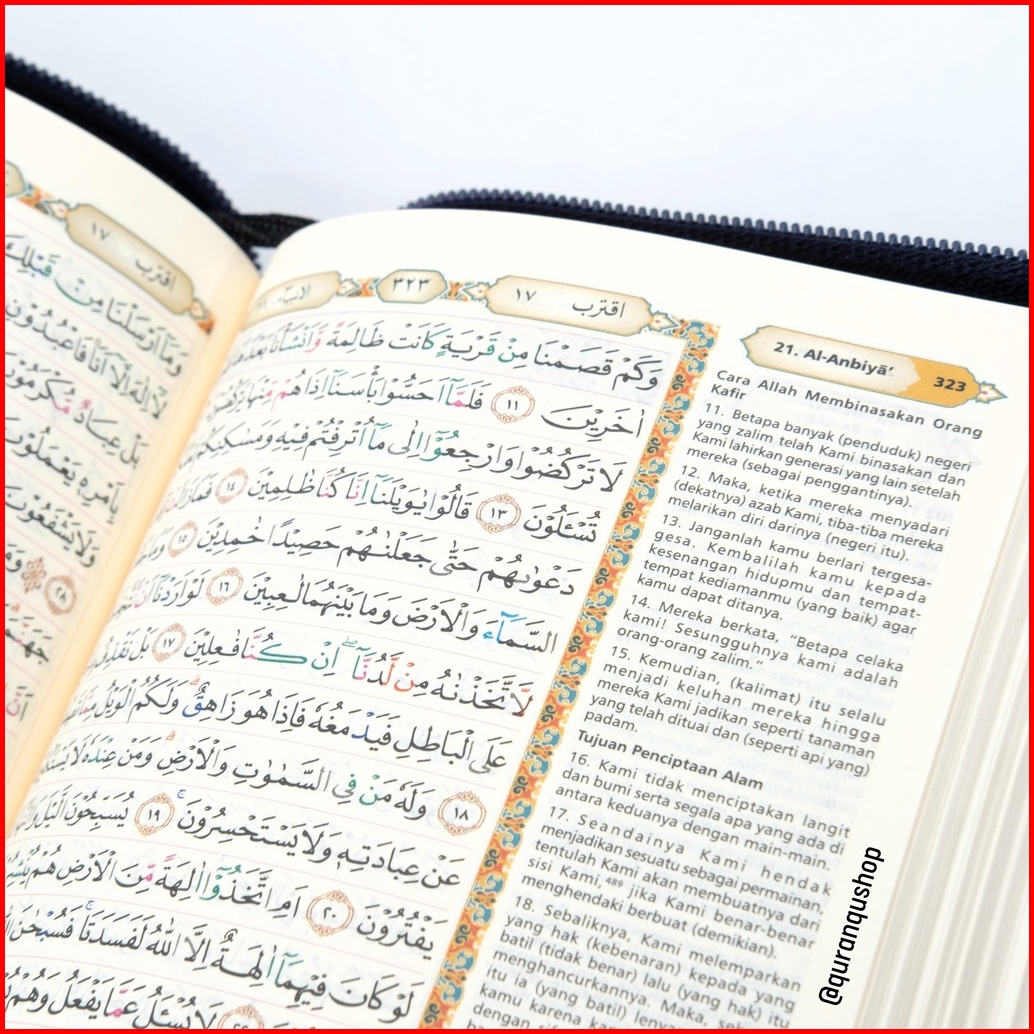 ١٧ اقترب
اقترب ١٧
٣٢٣
الانبيآء
وَكَمْ قَصَمْنَا مِنْ قَرْيَةٍ كَانَتْ ظَالِمَةً وَّاَنْشَأْنَا بَعْدَهَا
اٰخَرِيْنَ ١١ فَلَمَّآ اَحَسُّوْا بَأْسَنَآ اِذَا هُمْ مِّنْهَا يَرْكُضُوْنَ
لَا تَرْكُضُوْا وَارْجِعُوْٓا اِلٰى مَآ اُتْرِفْتُمْ فِيْهِ وَمَسٰكِنِكُمْ
تُسْـَٔلُوْنَ ١٣ قَالُوْا يٰوَيْلَنَآ اِنَّا كُنَّا ظٰلِمِيْنَ ١٤ فَمَا زَالَتْ
دَعْوٰىهُمْ حَتّٰى جَعَلْنٰهُمْ حَصِيْدًا خٰمِدِيْنَ ١٥ وَمَا
السَّمَآءَ وَالْاَرْضَ وَمَا بَيْنَهُمَا لٰعِبِيْنَ ١٦ لَوْ اَرَدْنَآ اَنْ
لَّاتَّخَذْنٰهُ مِنْ لَّدُنَّآ اِنْ كُنَّا فٰعِلِيْنَ ١٧ بَلْ نَقْذِفُ
عَلَى الْبَاطِلِ فَيَدْمَغُهٗ فَاِذَا هُوَ زَاهِقٌ وَلَكُمُ الْوَيْلُ
١٨ وَلَهٗ مَنْ فِى السَّمٰوٰتِ وَالْاَرْضِ وَمَنْ عِنْدَهٗ لَا
عَنْ عِبَادَتِهٖ وَلَا يَسْتَحْسِرُوْنَ ١٩ يُسَبِّحُوْنَ الَّيْلَ
يَفْتُرُوْنَ ٢٠ اَمِ اتَّخَذُوْٓا اٰلِهَةً مِّنَ الْاَرْضِ هُمْ
لَوْ كَانَ فِيْهِمَآ اٰلِهَةٌ اِلَّا اللّٰهُ لَفَسَدَتَا فَسُبْحٰنَ
لَا يُسْـَٔلُ عَمَّا يَفْعَلُ وَهُمْ
21. Al-Anbiyā’ 323
Cara Allah Membinasakan Orang
Kafir
11. Betapa banyak (penduduk) negeri
yang zalim telah Kami binasakan dan
Kami lahirkan generasi yang lain setelah
mereka (sebagai penggantinya).
12. Maka, ketika mereka menyadari
(dekatnya) azab Kami, tiba-tiba mereka
melarikan diri darinya (negeri itu).
13. Janganlah kamu berlari tergesa-
gesa. Kembalilah kamu kepada
kesenangan hidupmu dan tempat-
tempat kediamanmu (yang baik) agar
kamu dapat ditanya.
14. Mereka berkata, “Betapa celaka
kami! Sesungguhnya kami adalah
orang-orang zalim.”
15. Kemudian, (kalimat) itu selalu
menjadi keluhan mereka hingga
mereka Kami jadikan seperti tanaman
yang telah dituai dan (seperti api yang)
padam.
Tujuan Penciptaan Alam
16. Kami tidak menciptakan langit
dan bumi serta segala apa yang ada di
antara keduanya dengan main-main.
17. Seandainya Kami hendak
menjadikan sesuatu sebagai permainan,
tentulah Kami akan membuatnya dari
sisi Kami,⁴⁸⁹ jika Kami benar-benar
menghendaki berbuat (demikian).
18. Sebaliknya, Kami melemparkan
yang hak (kebenaran) kepada yang
batil (tidak benar) lalu (yang hak) itu
menghancurkannya. Maka,
itu ia (yang batil)
kamu karena
dengan
@quranqushop